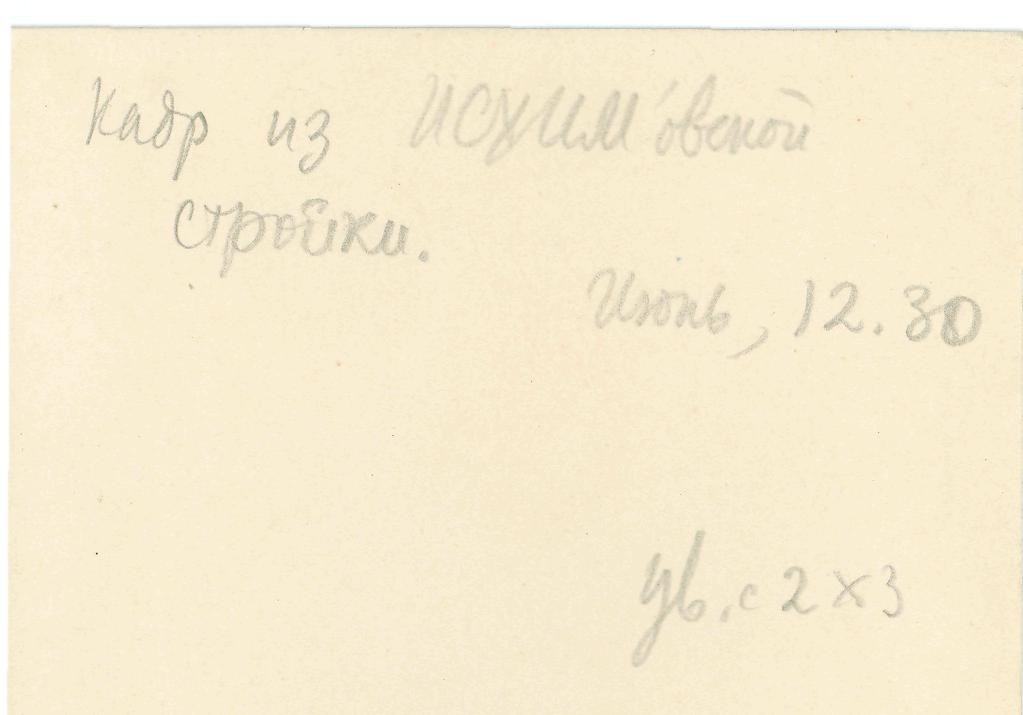 Кадр из ИСХИМ'овской
стройки.
Июнь, 12.30
Ув. с 2 х 3